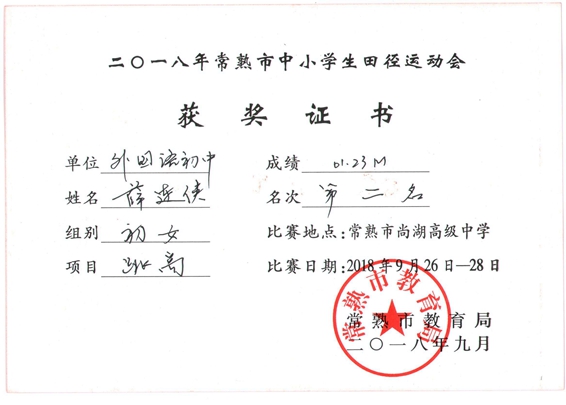 二〇一八年常熟市中小学生田径运动会
获奖证书
单位 外国语初中 成绩 01.23M
姓名 薛 侠 名次 第二名
组别 初女 比赛地点：常熟市尚湖高级中学
项目 跳高 比赛日期：2018年9月26日—28日
常熟市教育局
常熟市教育局
二〇一八年九月